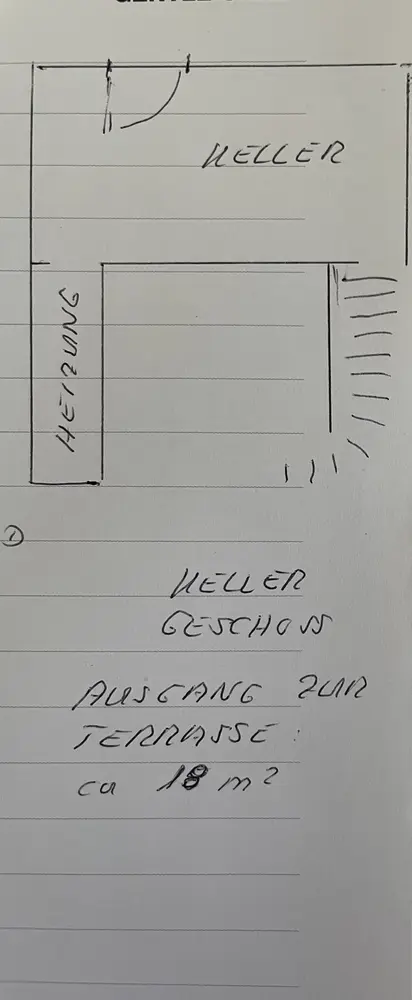 KELLER
HEIZUNG
1
KELLER
GESCHOSS
AUSGANG ZUR
TERRASSE :
ca 18 m²